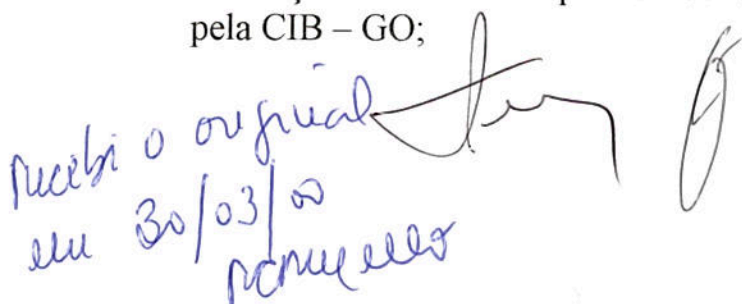 pela CIB – GO;
recebi o original
em 30/03/00